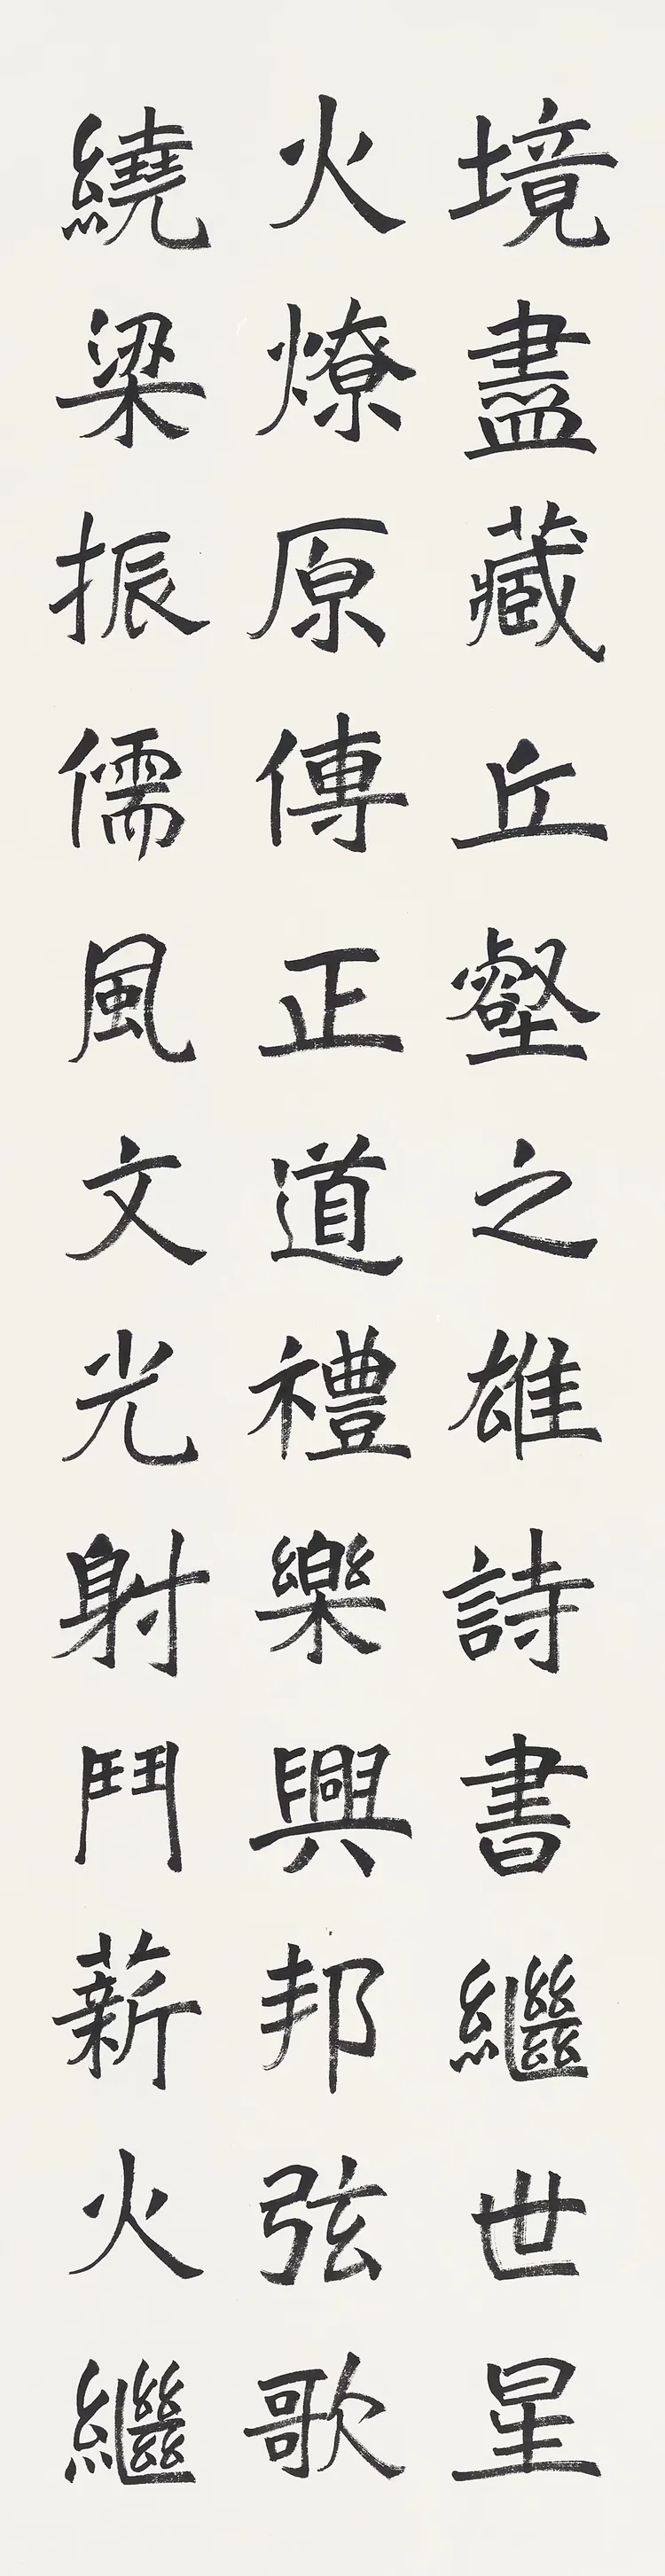 境盡藏丘壑之雄詩書繼世星
火燎原傳正道禮樂興邦弦歌
繞梁振儒風文光射鬥薪火繼